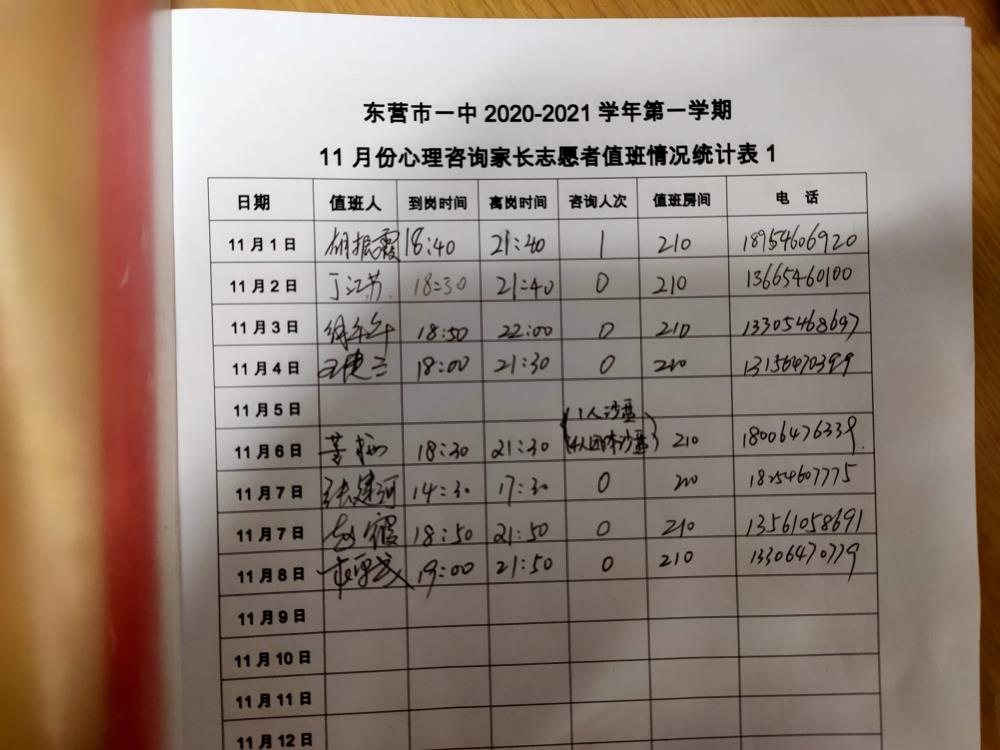 东营市一中 2020-2021 学年第一学期
11 月份心理咨询家长志愿者值班情况统计表 1
日期 值班人 到岗时间 离岗时间 咨询人次 值班房间 电 话
11 月 1 日 胡振霞 18:40 21:40 1 210 18954606920
11 月 2 日 丁江苏 18:30 21:40 0 210 13665460100
11 月 3 日 18:50 22:00 0 210 13305468697
11 月 4 日 18:00 21:30 0 210 13156470399
11 月 5 日
11 月 6 日 18:30 21:30 (1人沙盘 4人团体沙盘) 210 18006476339
11 月 7 日 张建河 14:30 17:30 0 210 18254607775
11 月 7 日 赵霞 18:50 21:50 0 210 13561058691
11 月 8 日 19:00 21:50 0 210 13306470779
11 月 9 日
11 月 10 日
11 月 11 日
11 月 12 日